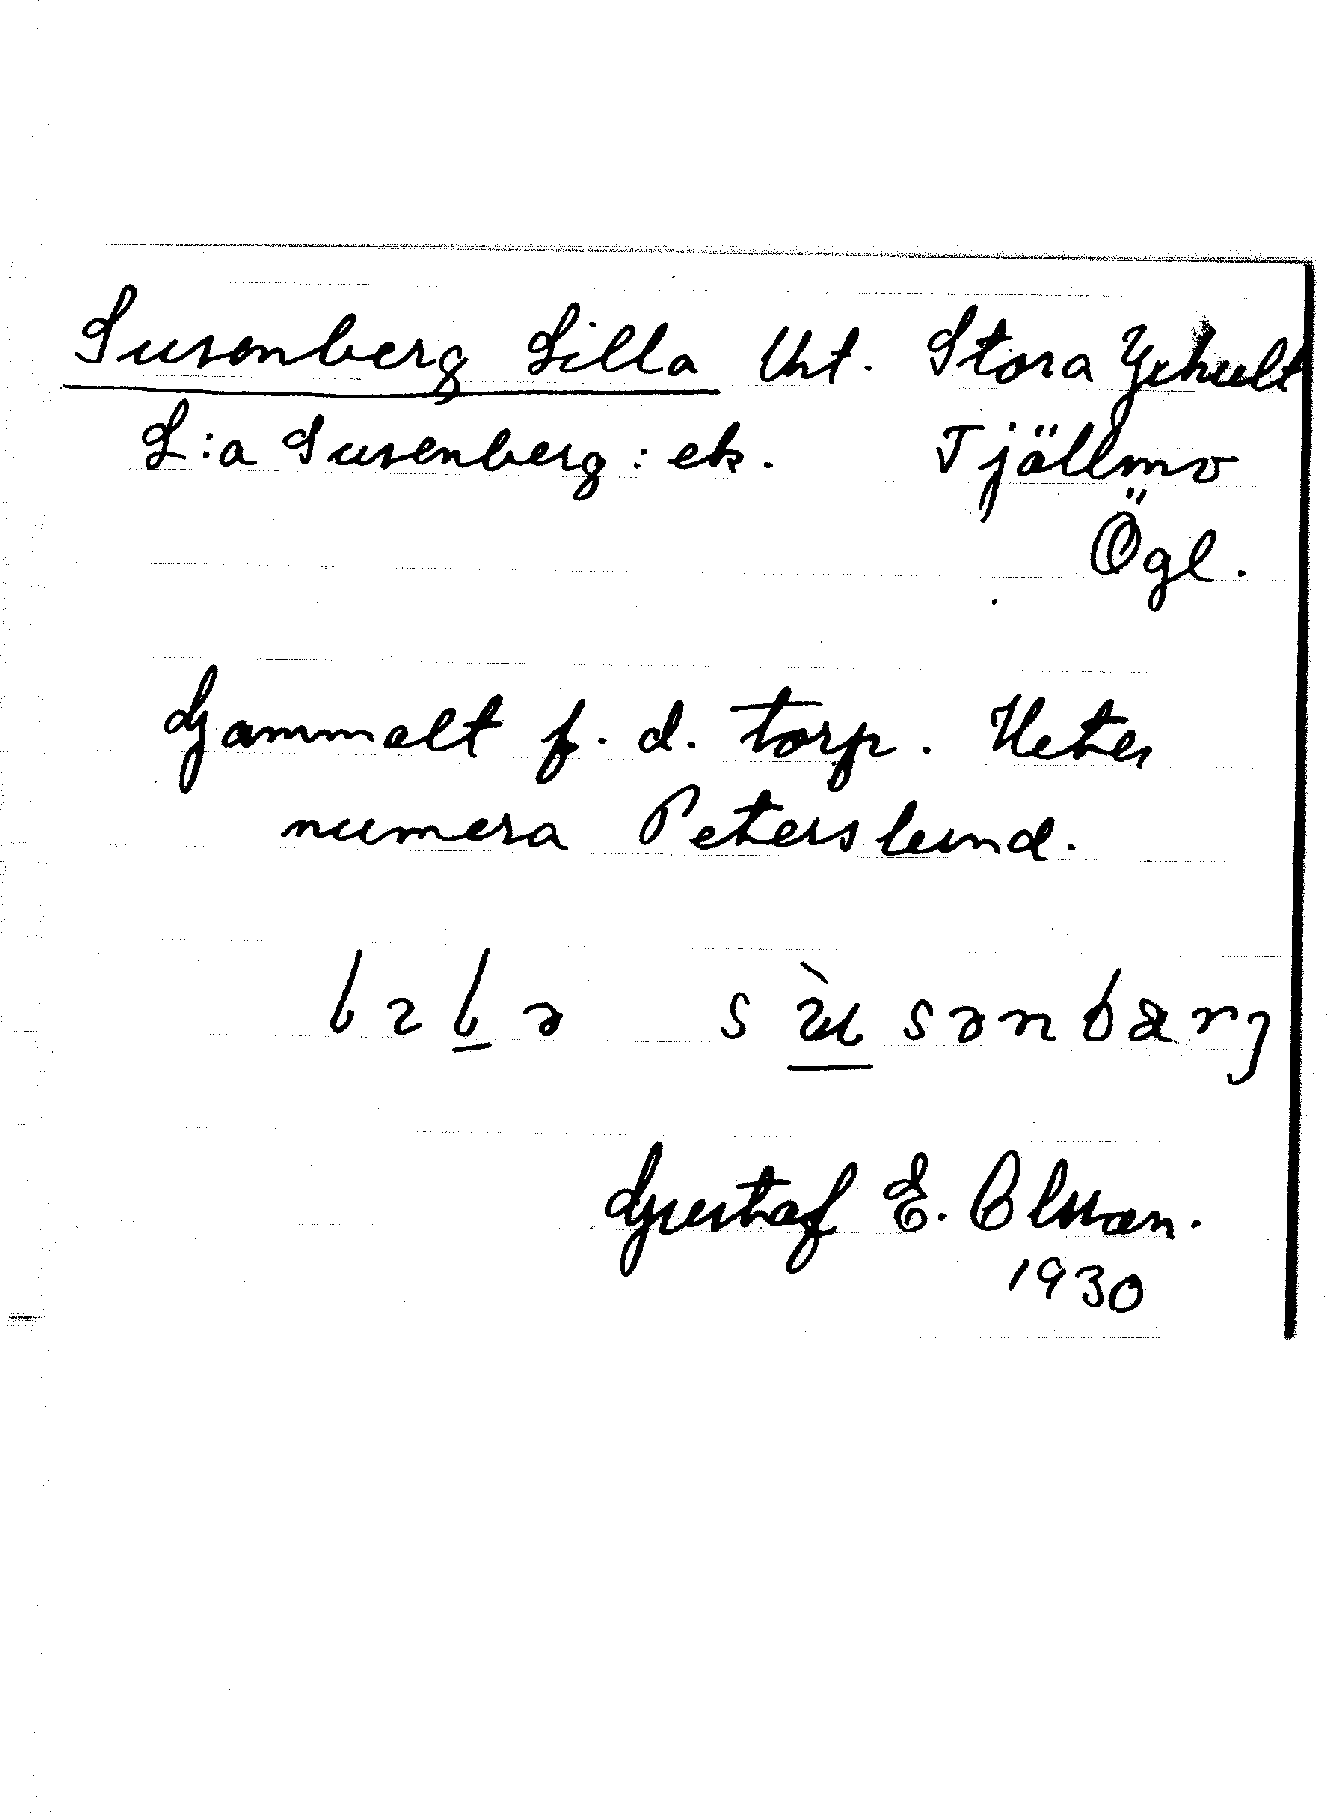 Susenberg Lilla Urt. Stora Yxhult
L:a Susenberg: ek. Tjällmo
Ögl.
Gammalt f. d. torp. Heter
numera Peterslund.
sùsənbærj
Gustaf E. Olsson.
1930